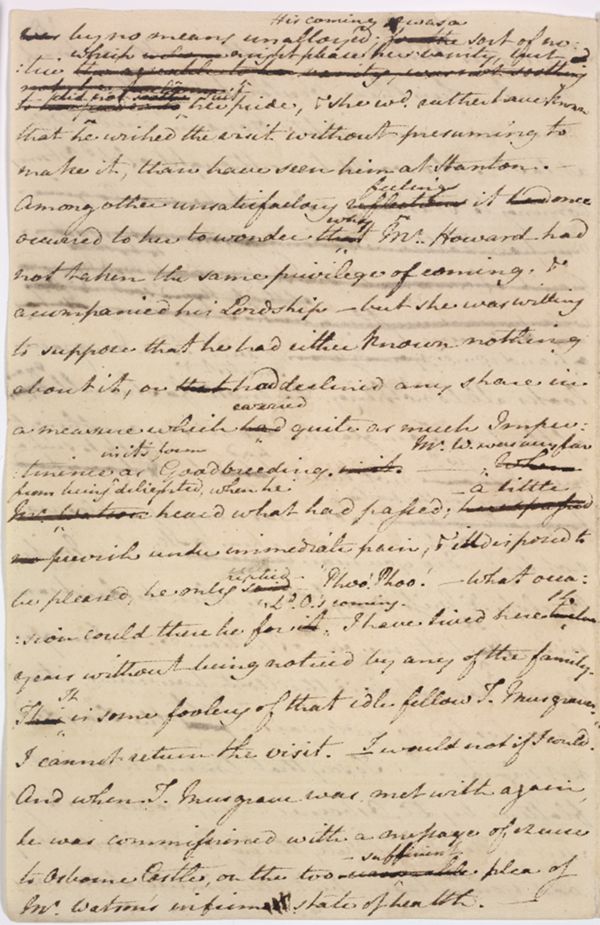 His coming was a
was by no means unallayed; for the sort of no:
which might please her vanity, but
:tice
did not suit
to her pride, & she wd. rather have known
that he wished the visit without presuming to
make it, than have seen him at Stanton. —
feeling
Among other unsatisfactory reflections it had once
why
occurred to her to wonder that Mr. Howard had
not taken the same privilege of coming, &
accompanied his Lordship — but she was willing
to suppose that he had either known nothing
about it, or that had declined any share in
carried
a measure which had quite as much Imper:
its form Mr. W. was very far
:tinence in as Goodbreeding. — When
from being delighted, when he — a little
Mr. Watson heard what had passed;
peevish under immediate pain, & illdisposed to
replied
be pleased, he only said "Phoo! Phoo! — What occa:
Ld. O.'s coming.
:sion could there be for it. I have lived here 14
years without being noticed by any of the family.
It
This is some foolery of that idle fellow T. Musgrave.
I cannot return the visit. — I would not if I could."
And when T. Musgrave was met with again,
he was commissioned with a message of excuse
— sufficient
to Osborne Castle, on the too plea of
Mr. Watson's infirm state of health. —